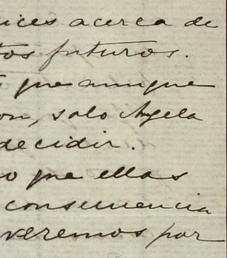 ices acerca de
tos futuros.
que aunque
on, solo Angela
decidir.
o que ellas
consecuencia
veremos por